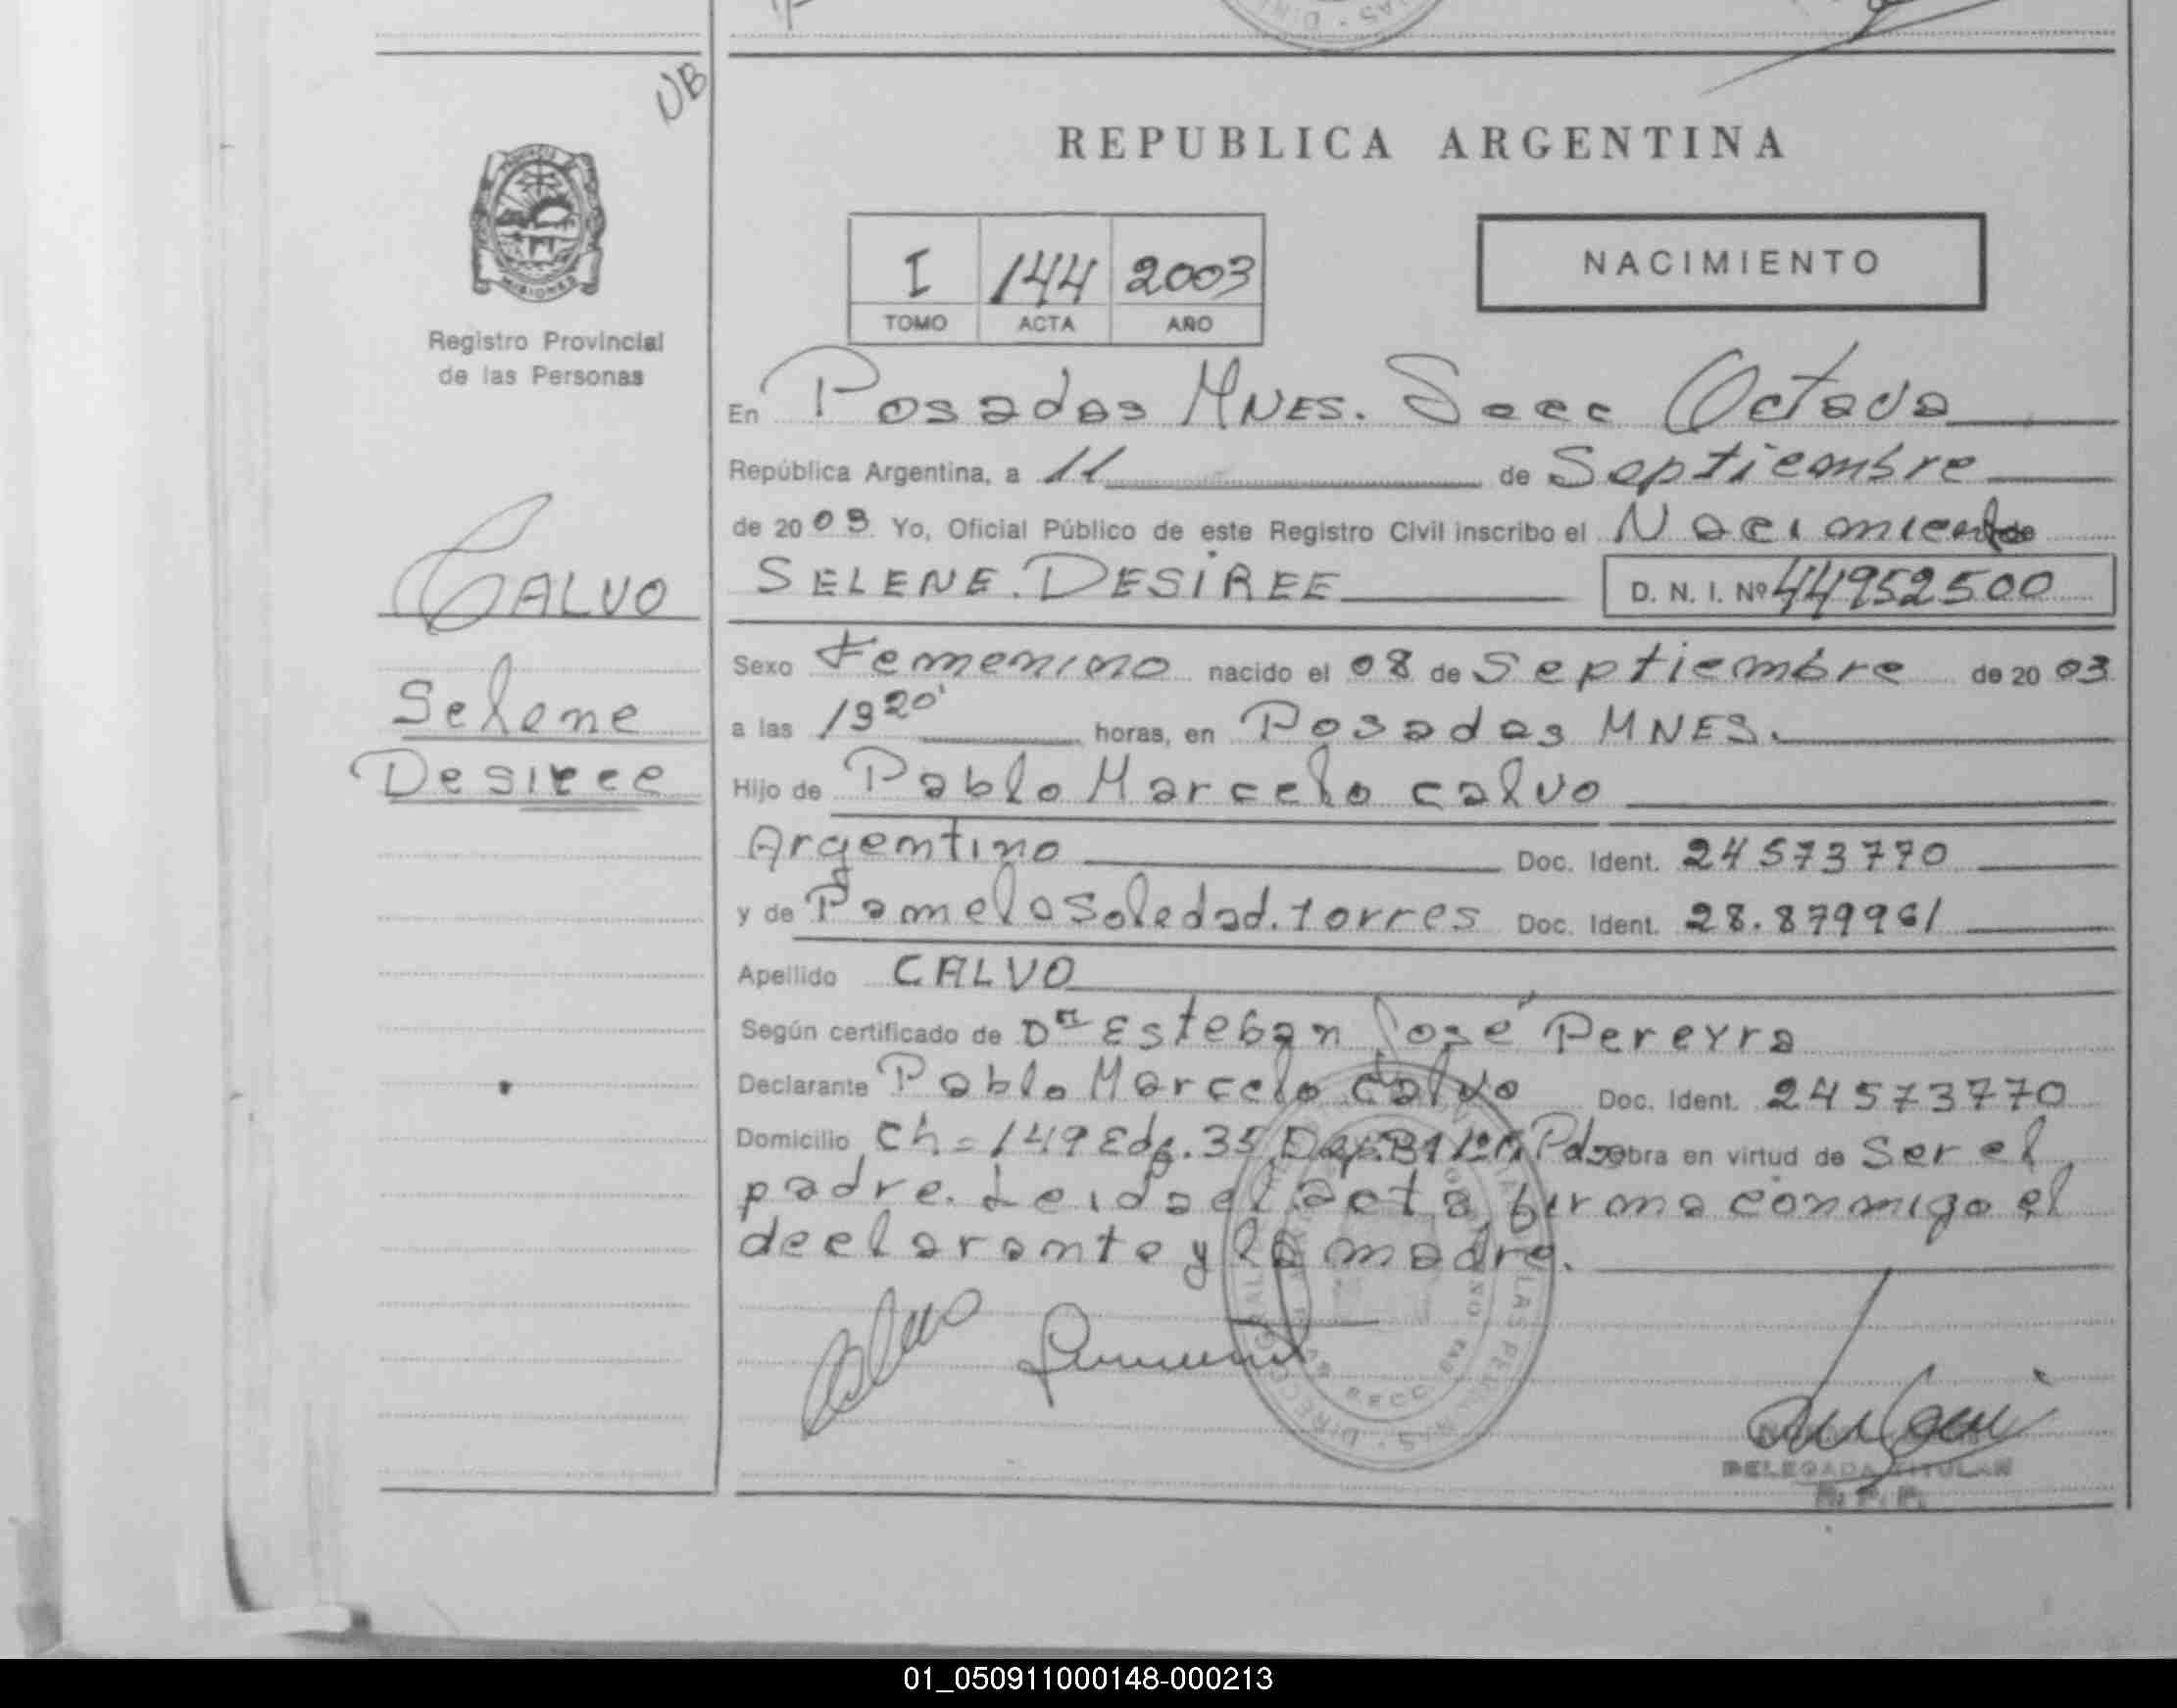 NB
REPUBLICA ARGENTINA
PROVINCIA DE
MISIONES
Registro Provincial
de las Personas
I 144 2003
TOMO ACTA AÑO
NACIMIENTO
En Posadas MNES. Secc Octava
República Argentina, a 11 de Septiembre
de 2003 Yo, Oficial Público de este Registro Civil inscribo el Nacimiento de
CALVO
Selene
Desiree
SELENE. DESIREE D. N. I. Nº 44952500
Sexo Femenino nacido el 08 de Septiembre de 2003
a las 1920' horas, en Posadas MNES.
Hijo de Pablo Marcelo Calvo
Argentino Doc. Ident. 24573770
y de Pamela Soledad. Torres Doc. Ident. 28.879961
Apellido CALVO
Según certificado de Dr Esteban José Pereyra
Declarante Pablo Marcelo Calvo Doc. Ident. 24573770
Domicilio Ch=149 Edf. 35 Pds obra en virtud de Ser el
padre. Leida el acta firma conmigo el
declarante y la madre.
Calvo
DELEGADA TITULAR
R. P. P.
01_050911000148-000213